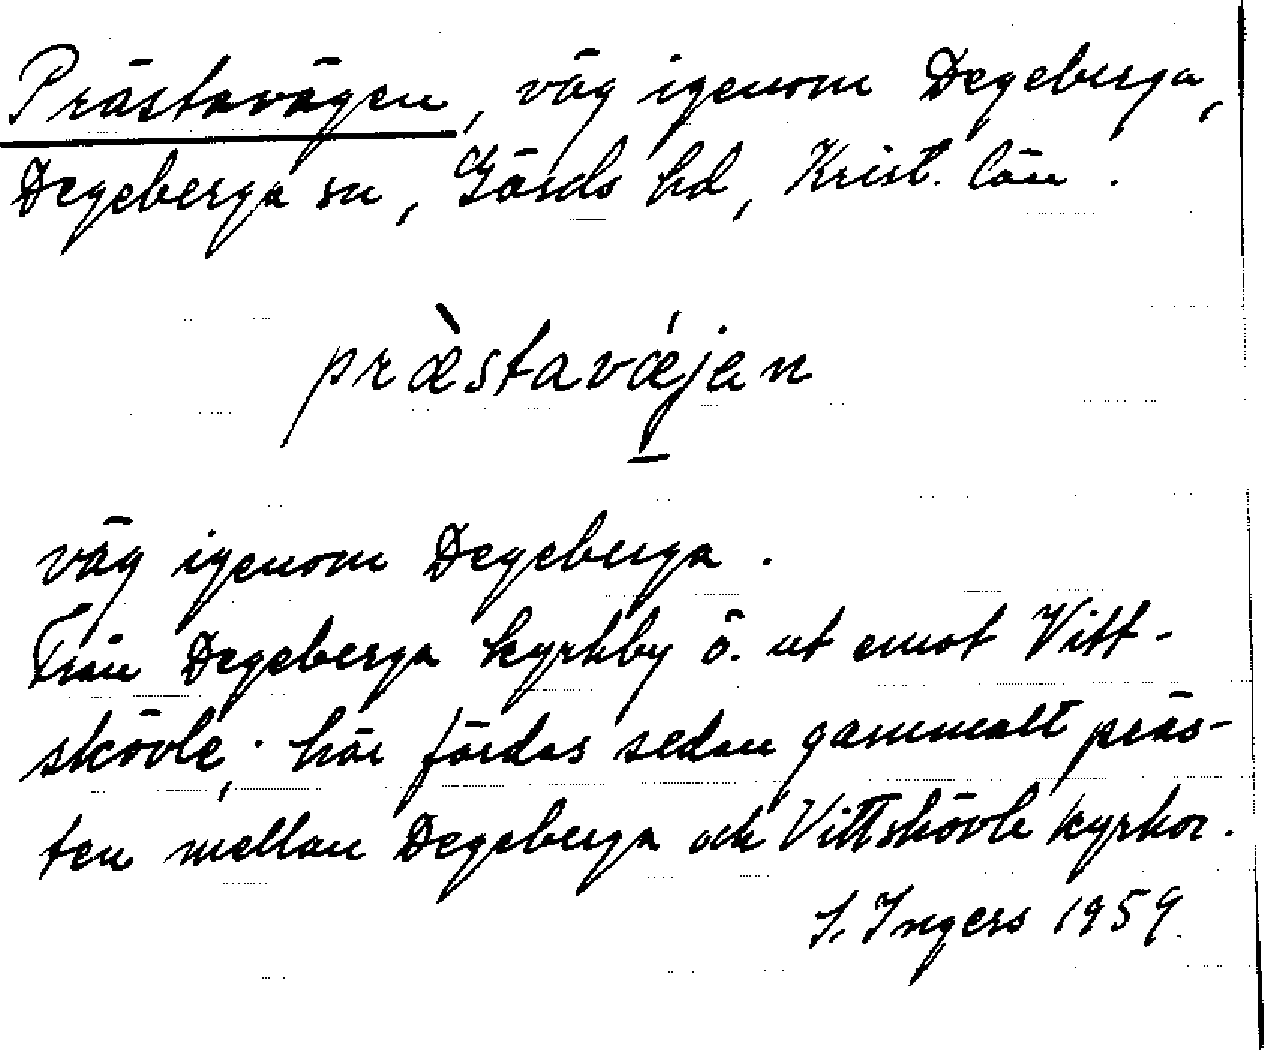 Prästavägen, väg igenom Degeberga,
Degeberga sn, Gärds hd, Krist. län.
præ̀stavǽjan
väg igenom Degeberga.
Från Degeberga kyrkby ö. ut emot Vitt-
skövle; här färdas sedan gammalt präs-
ten mellan Degeberga och Vittskövle kyrkor.
I. Ingers 1959.